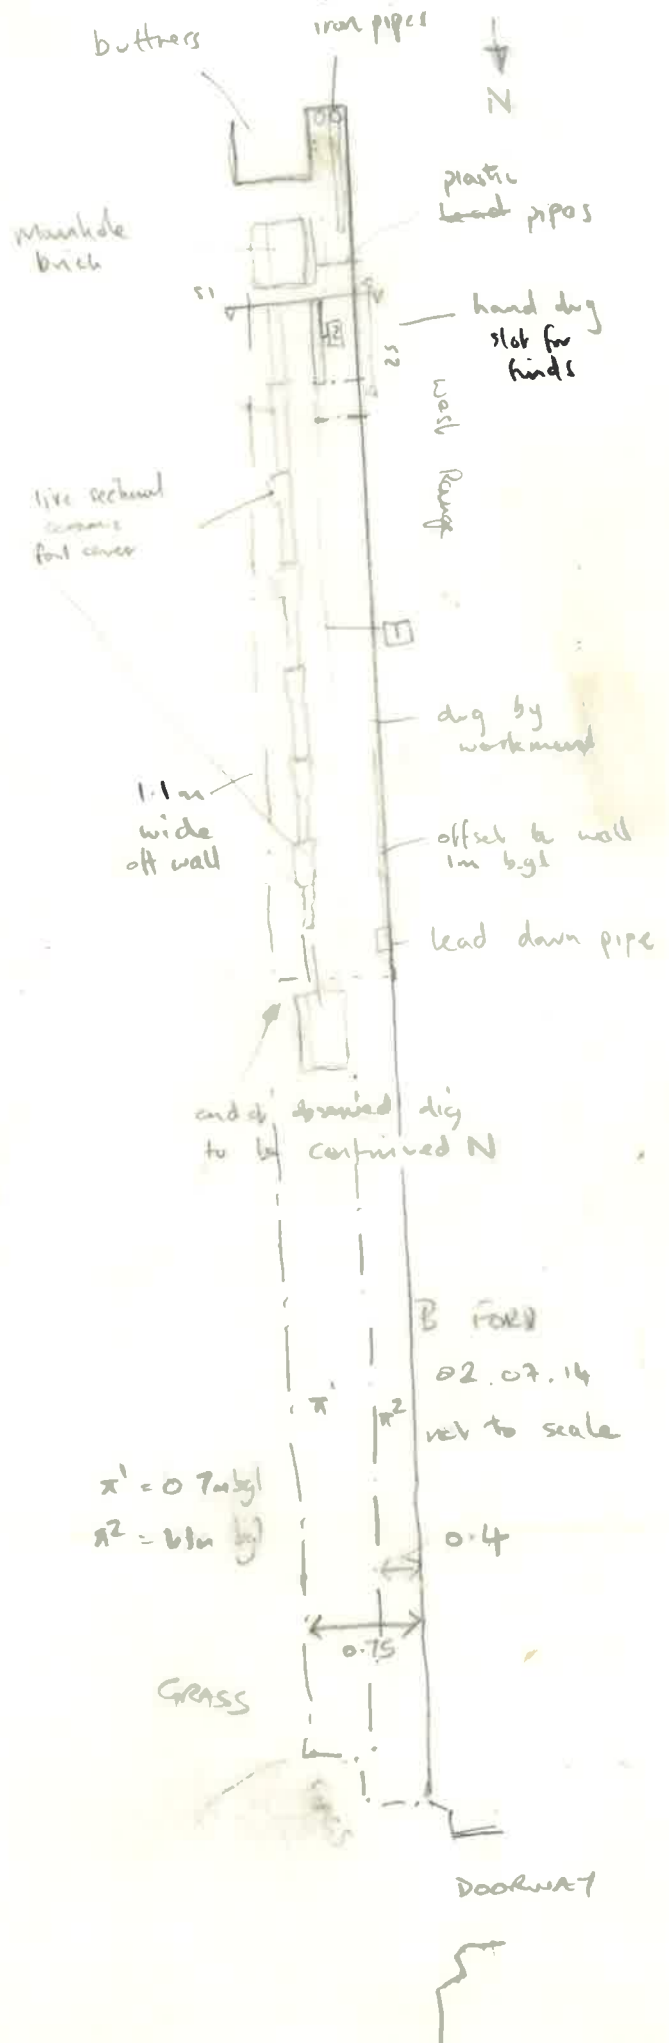 iron pipes
buttress
N
plastic
lead pipes
manhole
brick
S1
hand dug
slot for
finds
2
S2
West Range
live sectional
ceramic
foul
1
dug by
1.1m
wide
off wall
offset to wall
1m bgl
lead down pipe
end of observed dig
to be continued N
B FORD
02.07.14
not to scale
π¹
π²
π¹ = 0.7m bgl
π² = 1m bgl
0.4
0.75
GRASS
DOORWAY